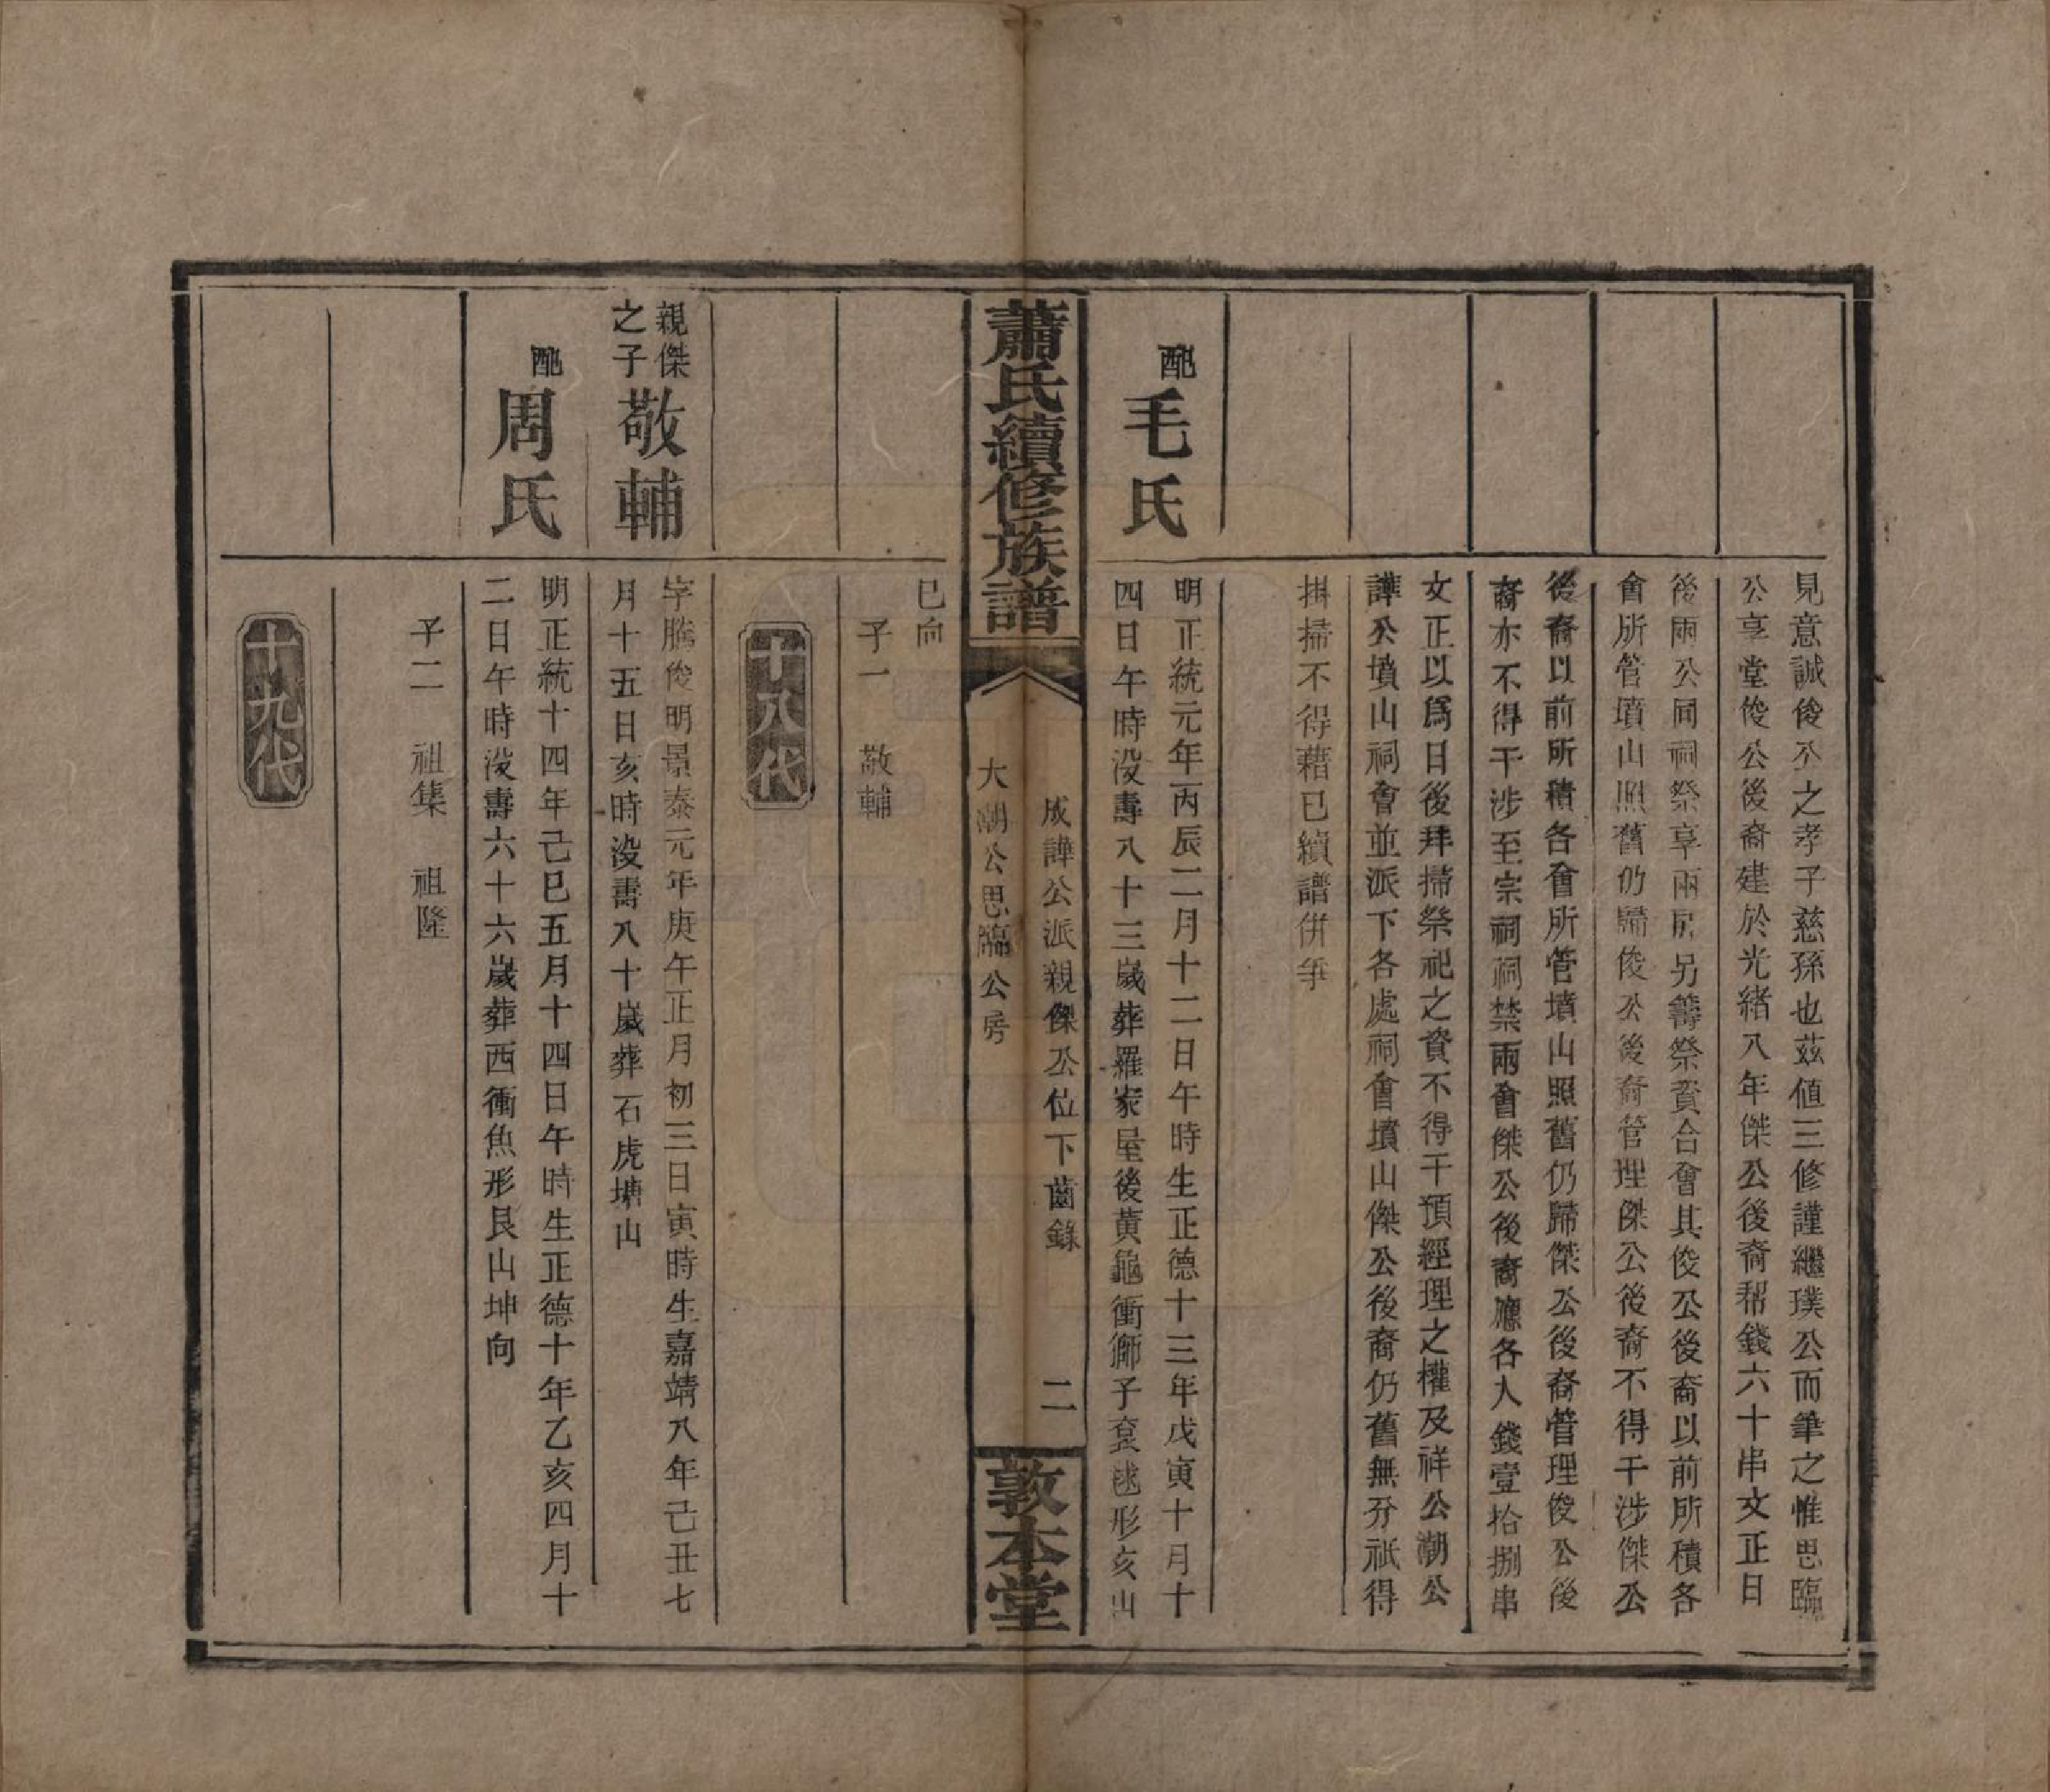 見意誠後公之孝子慈孫也茲値三修謹繼璞公而筆之惟思臨
公享堂俊公後裔建於光緒八年傑公後裔帮錢六十串文正日
後兩公同祠祭享兩房另籌祭資合會其俊公後裔以前所積各
會所管墳山照舊仍歸俊公後裔管理傑公後裔不得干涉傑公
後裔以前所積各會所管墳山照舊仍歸傑公後裔管理俊公後
裔亦不得干涉至宗祠祠禁兩會傑公後裔應各入錢壹拾捌串
文正以爲日後拜掃祭祀之資不得干預經理之權及祥公潮公
譁公墳山祠會並派下各處祠會墳山傑公後裔仍舊無分祇得
掛掃不得藉已續譜併爭
配
毛氏
明正統元年丙辰二月十二日午時生正德十三年戊寅十月十
四日午時沒壽八十三歲葬羅家屋後黃龜衝獅子袞毬形亥山
蕭氏續修族譜
成譁公派親傑公位下齒錄
大潮公思臨公房
二
敦本堂
巳向
子一 敬輔
十八代
親傑
之子
敬輔
字騰俊明景泰元年庚午正月初三日寅時生嘉靖八年己丑七
月十五日亥時沒壽八十歲葬石虎塘山
配
周氏
明正統十四年己巳五月十四日午時生正德十年乙亥四月十
二日午時沒壽六十六歲葬西衝魚形艮山坤向
子二 祖集 祖隆
十九代